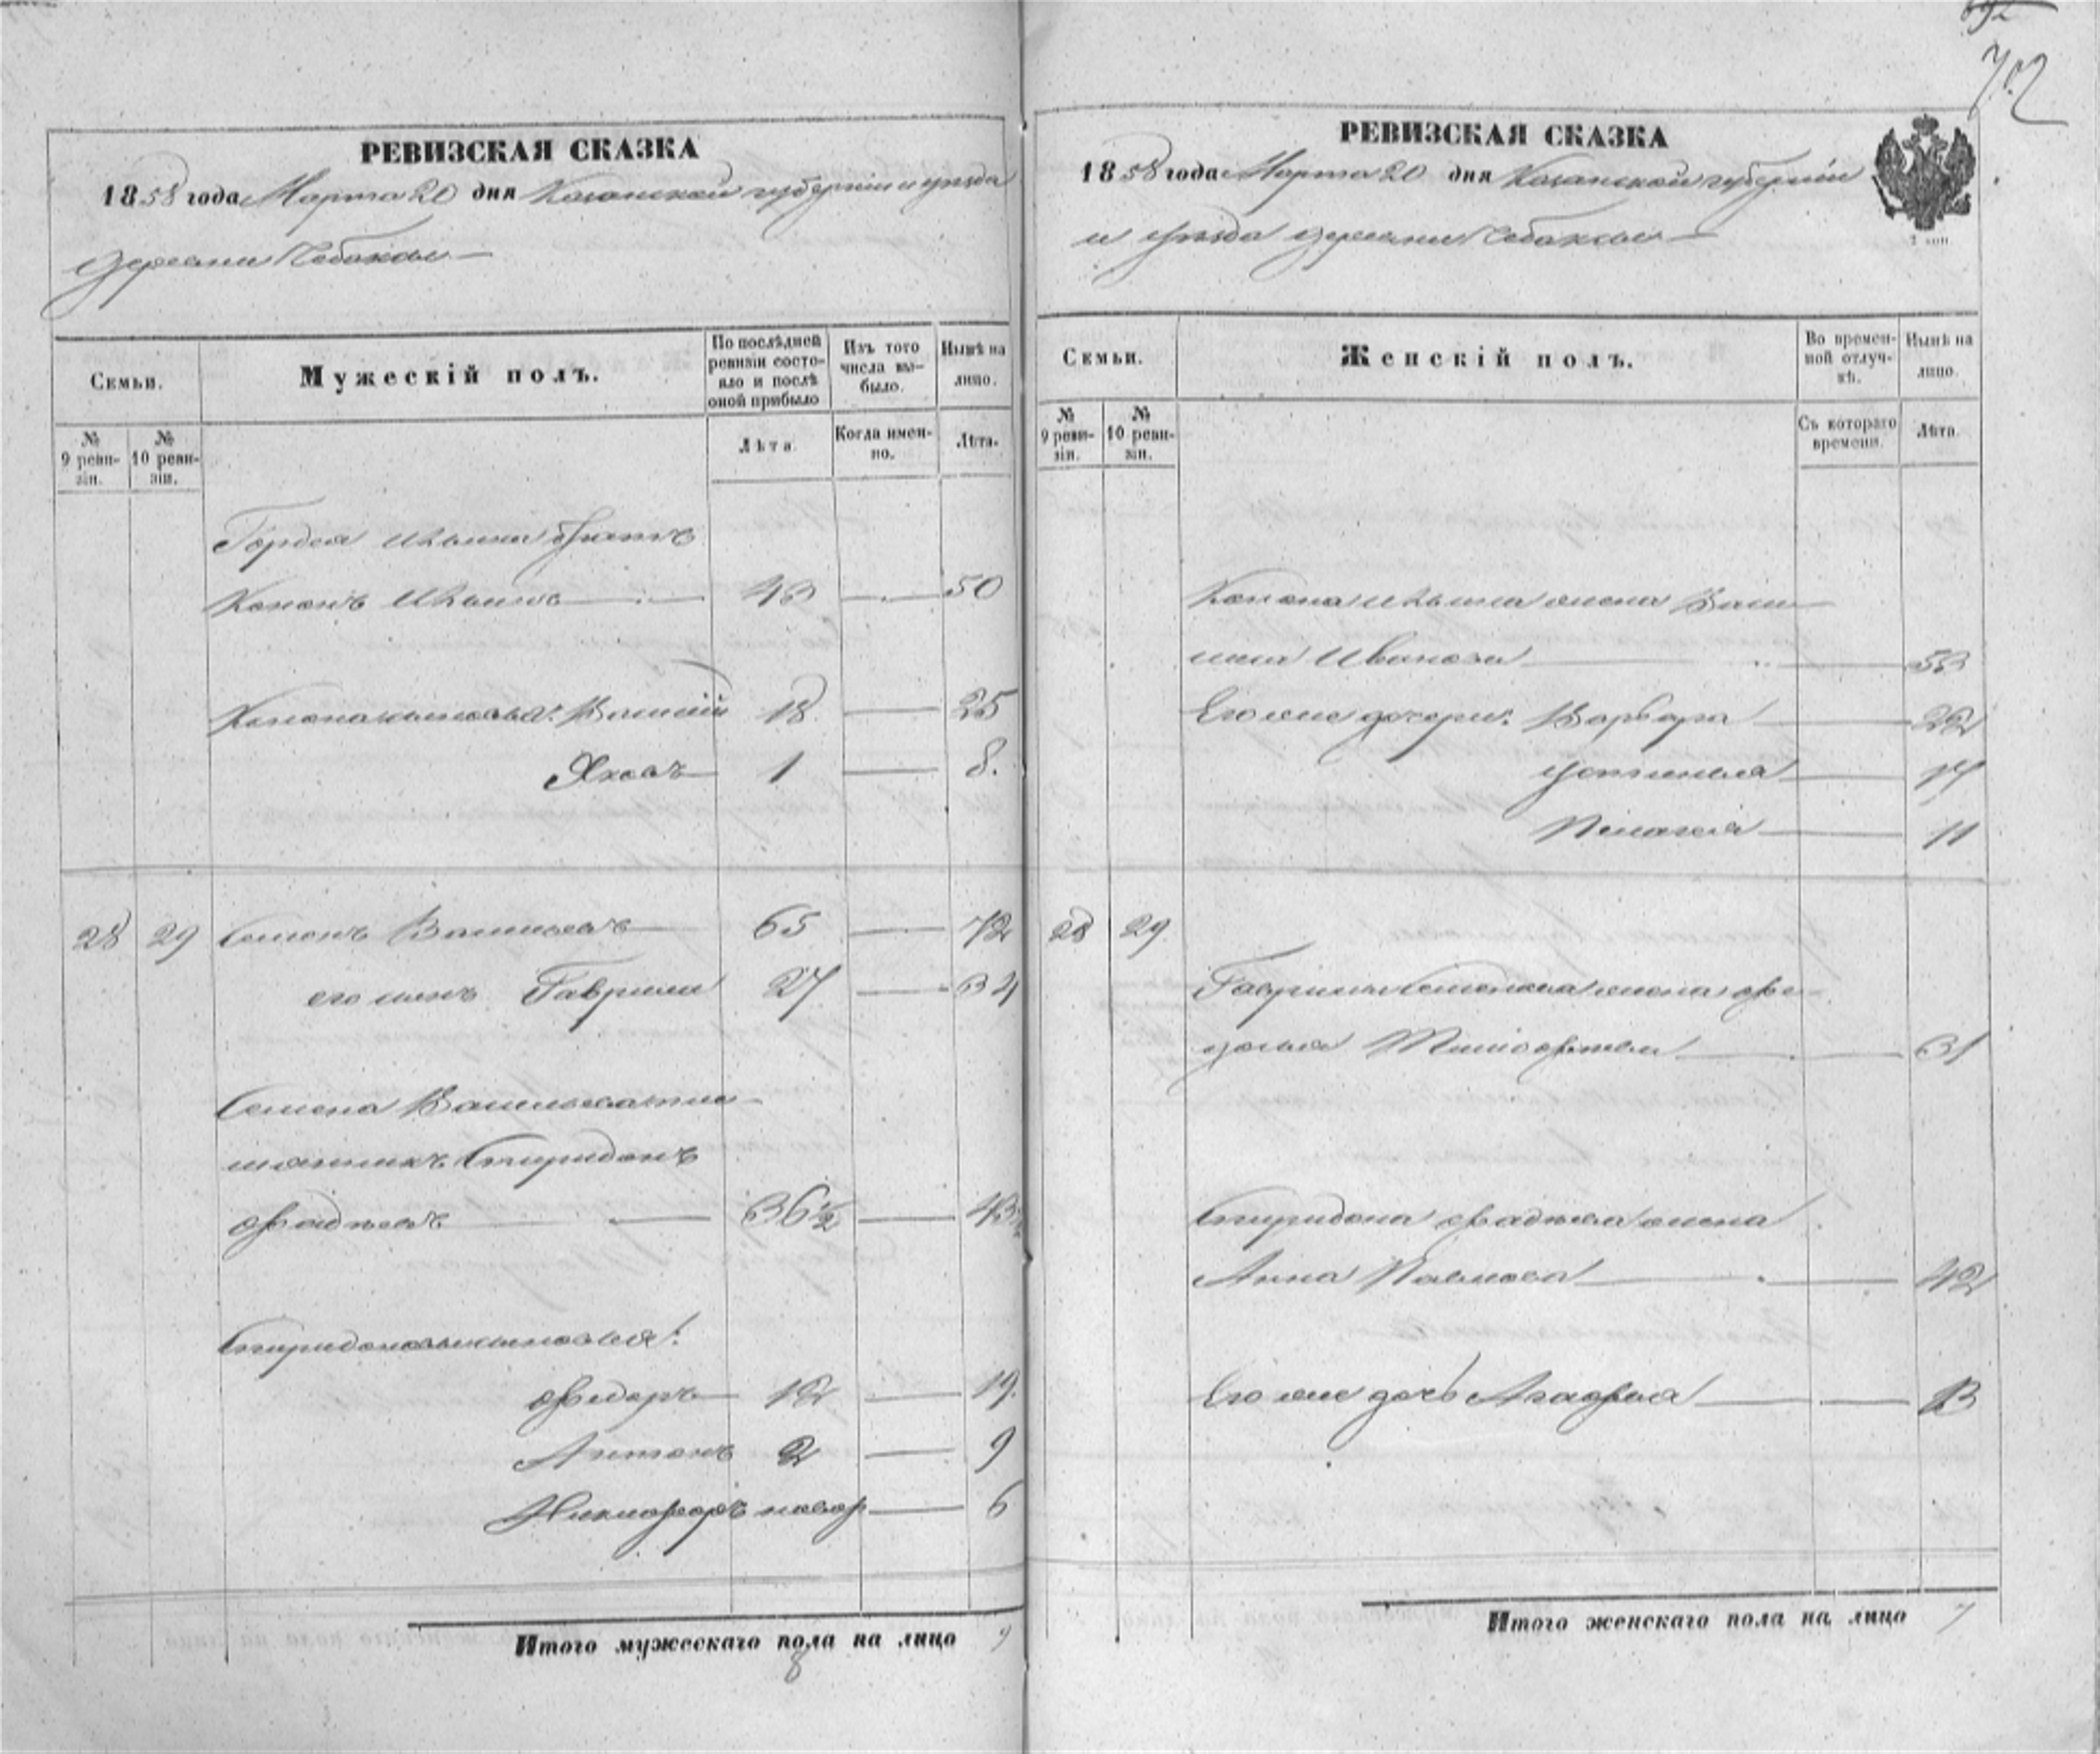 702
РЕВИЗСКАЯ СКАЗКА
1858 года Марта 20 дня Казанской губерніи и уезда
деревни Чебаксы
Семьи.
Мужескій полъ.
По послѣдней ревизіи состояло и послѣ оной прибыло
Изъ того числа выбыло.
Нынѣ на лицо.
№ 9 ревизіи.
№ 10 ревизіи.
Лѣта.
Когда именно.
Лѣта.
Гордея Ильина братъ
Кононъ Ильинъ 43 50
Конона сыновья: Василій 18 25
Яковъ 1 8.
28 29 Семенъ Васильевъ 65 72
его сынъ Гаврила 27 34
Семена Васильева пле-
мянникъ Спиридонъ
Фадѣевъ 36½ 43½
Спиридоновы сыновья:
Федоръ 12 19.
Антонъ 2 9
Никифоръ новор 6
Итого мужескаго пола на лицо 9
8
РЕВИЗСКАЯ СКАЗКА
1858 года Марта 20 дня Казанской губерніи
и уезда деревни Чебаксы
Семьи.
Женскій полъ.
Во временной отлучкѣ.
Нынѣ на лицо.
№ 9 ревизіи.
№ 10 ревизіи.
Съ котораго времени.
Лѣта.
Конона Ильина жена Васи-
лиса Иванова 53
Его же дочери: Варвара 22
Устинья 17
Пелагея 11
28 29
Гаврилы Семенова жена Фе-
досья Тимофеева 31
Спиридона Фадѣева жена
Анна Павлова 42
Его же дочь Агафья 13
Итого женскаго пола на лицо 7